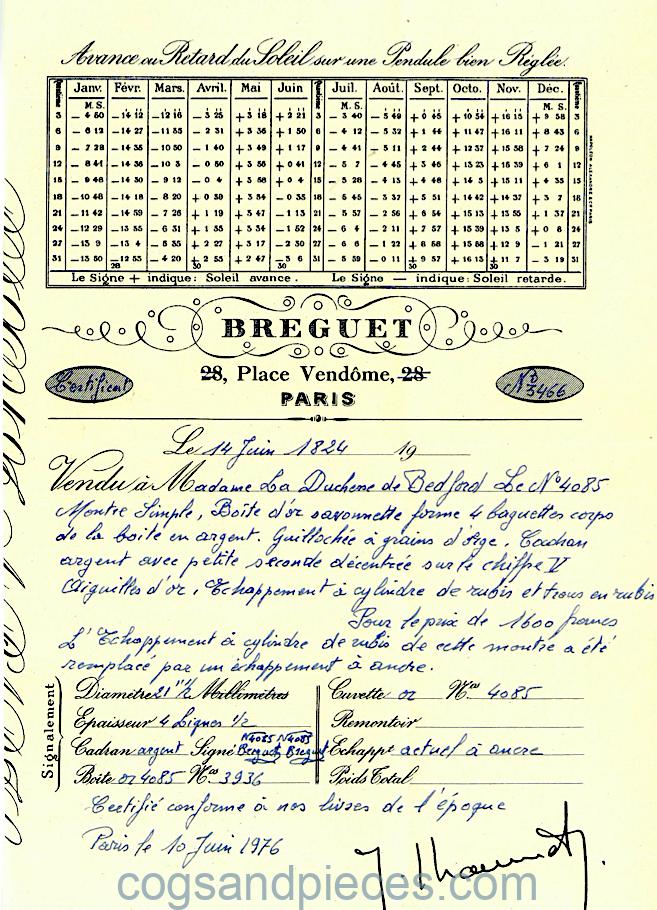 Avance ou Retard du Soleil sur une Pendule bien Réglée.
Quantième Janv. Févr. Mars. Avril. Mai Juin Quantième Juil. Août. Sept. Octo. Nov. Déc. Quantième
M. S. M. S. M. S.
3 — 4 50 — 14 12 — 12 16 — 3 25 + 3 18 + 2 21 3 — 3 40 — 5 49 + 0 45 + 10 54 + 16 15 + 9 58 3
6 — 6 12 — 14 27 — 11 35 — 2 31 + 3 36 + 1 50 6 — 4 12 — 5 32 + 1 44 + 11 47 + 16 11 + 8 43 6
9 — 7 28 — 14 35 — 10 50 — 1 40 + 3 49 + 1 17 9 — 4 41 — 5 11 + 2 44 + 12 37 + 15 58 + 7 24 9
12 — 8 41 — 14 36 — 10 3 — 0 50 + 3 56 + 0 41 12 — 5 7 — 4 45 + 3 46 + 13 23 + 15 39 + 6 1 12
15 — 9 48 — 14 30 — 9 12 — 0 4 + 3 58 + 0 4 15 — 5 28 — 4 13 + 4 48 + 14 5 + 15 11 + 4 35 15
18 — 10 48 — 14 18 — 8 20 + 0 39 + 3 54 — 0 35 18 — 5 45 — 3 37 + 5 51 + 14 42 + 14 37 + 3 7 18
21 — 11 42 — 14 59 — 7 26 + 1 19 + 3 47 — 1 13 21 — 5 57 — 2 56 + 6 54 + 15 13 + 13 55 + 1 37 21
24 — 12 29 — 13 35 — 6 31 + 1 55 + 3 34 — 1 52 24 — 6 4 — 2 11 + 7 57 + 15 39 + 13 5 + 0 8 24
27 — 13 9 — 13 4 — 5 35 + 2 27 + 3 17 — 2 30 27 — 6 6 — 1 22 + 8 58 + 15 58 + 12 9 — 1 21 27
31 — 13 50 — 12 55 — 4 20 + 2 55 + 2 47 — 3 6 31 — 5 59 — 0 11 + 9 57 + 16 13 + 11 7 — 3 19 31
28 30 30 30 30
Le Signe + indique: Soleil avance. Le Signe — indique: Soleil retarde.
BREGUET
28, Place Vendôme, 28
Certificat
No 3466
PARIS
Le 14 Juin 1824 19
Vendu à Madame La Duchesse de Bedford Le No 4085
Montre Simple, Boîte d'or savonnette forme 4 baguettes corps
de la boite en argent. Guillochée à grains d'orge, Cadran
argent avec petite seconde décentrée sur le chiffre V
Aiguilles d'or, Echappement à cylindre de rubis et trous en rubis
Pour le prix de 1600 francs
L'Echappement à cylindre de rubis de cette montre a été
remplacé par un échappement à ancre.
Signalement
Diamètre 21''' 1/2 Millimètres
Epaisseur 4 Lignes 1/2
Cadran argent Signé N4085 Breguet N4085 Breguet
Boîte or 4085 Nos 3936
Cuvette or Nos 4085
Remontoir
Echappt actuel à ancre
Poids Total
Certifié conforme à nos livres de l'époque
Paris le 10 Juin 1976
cogsandpieces.com